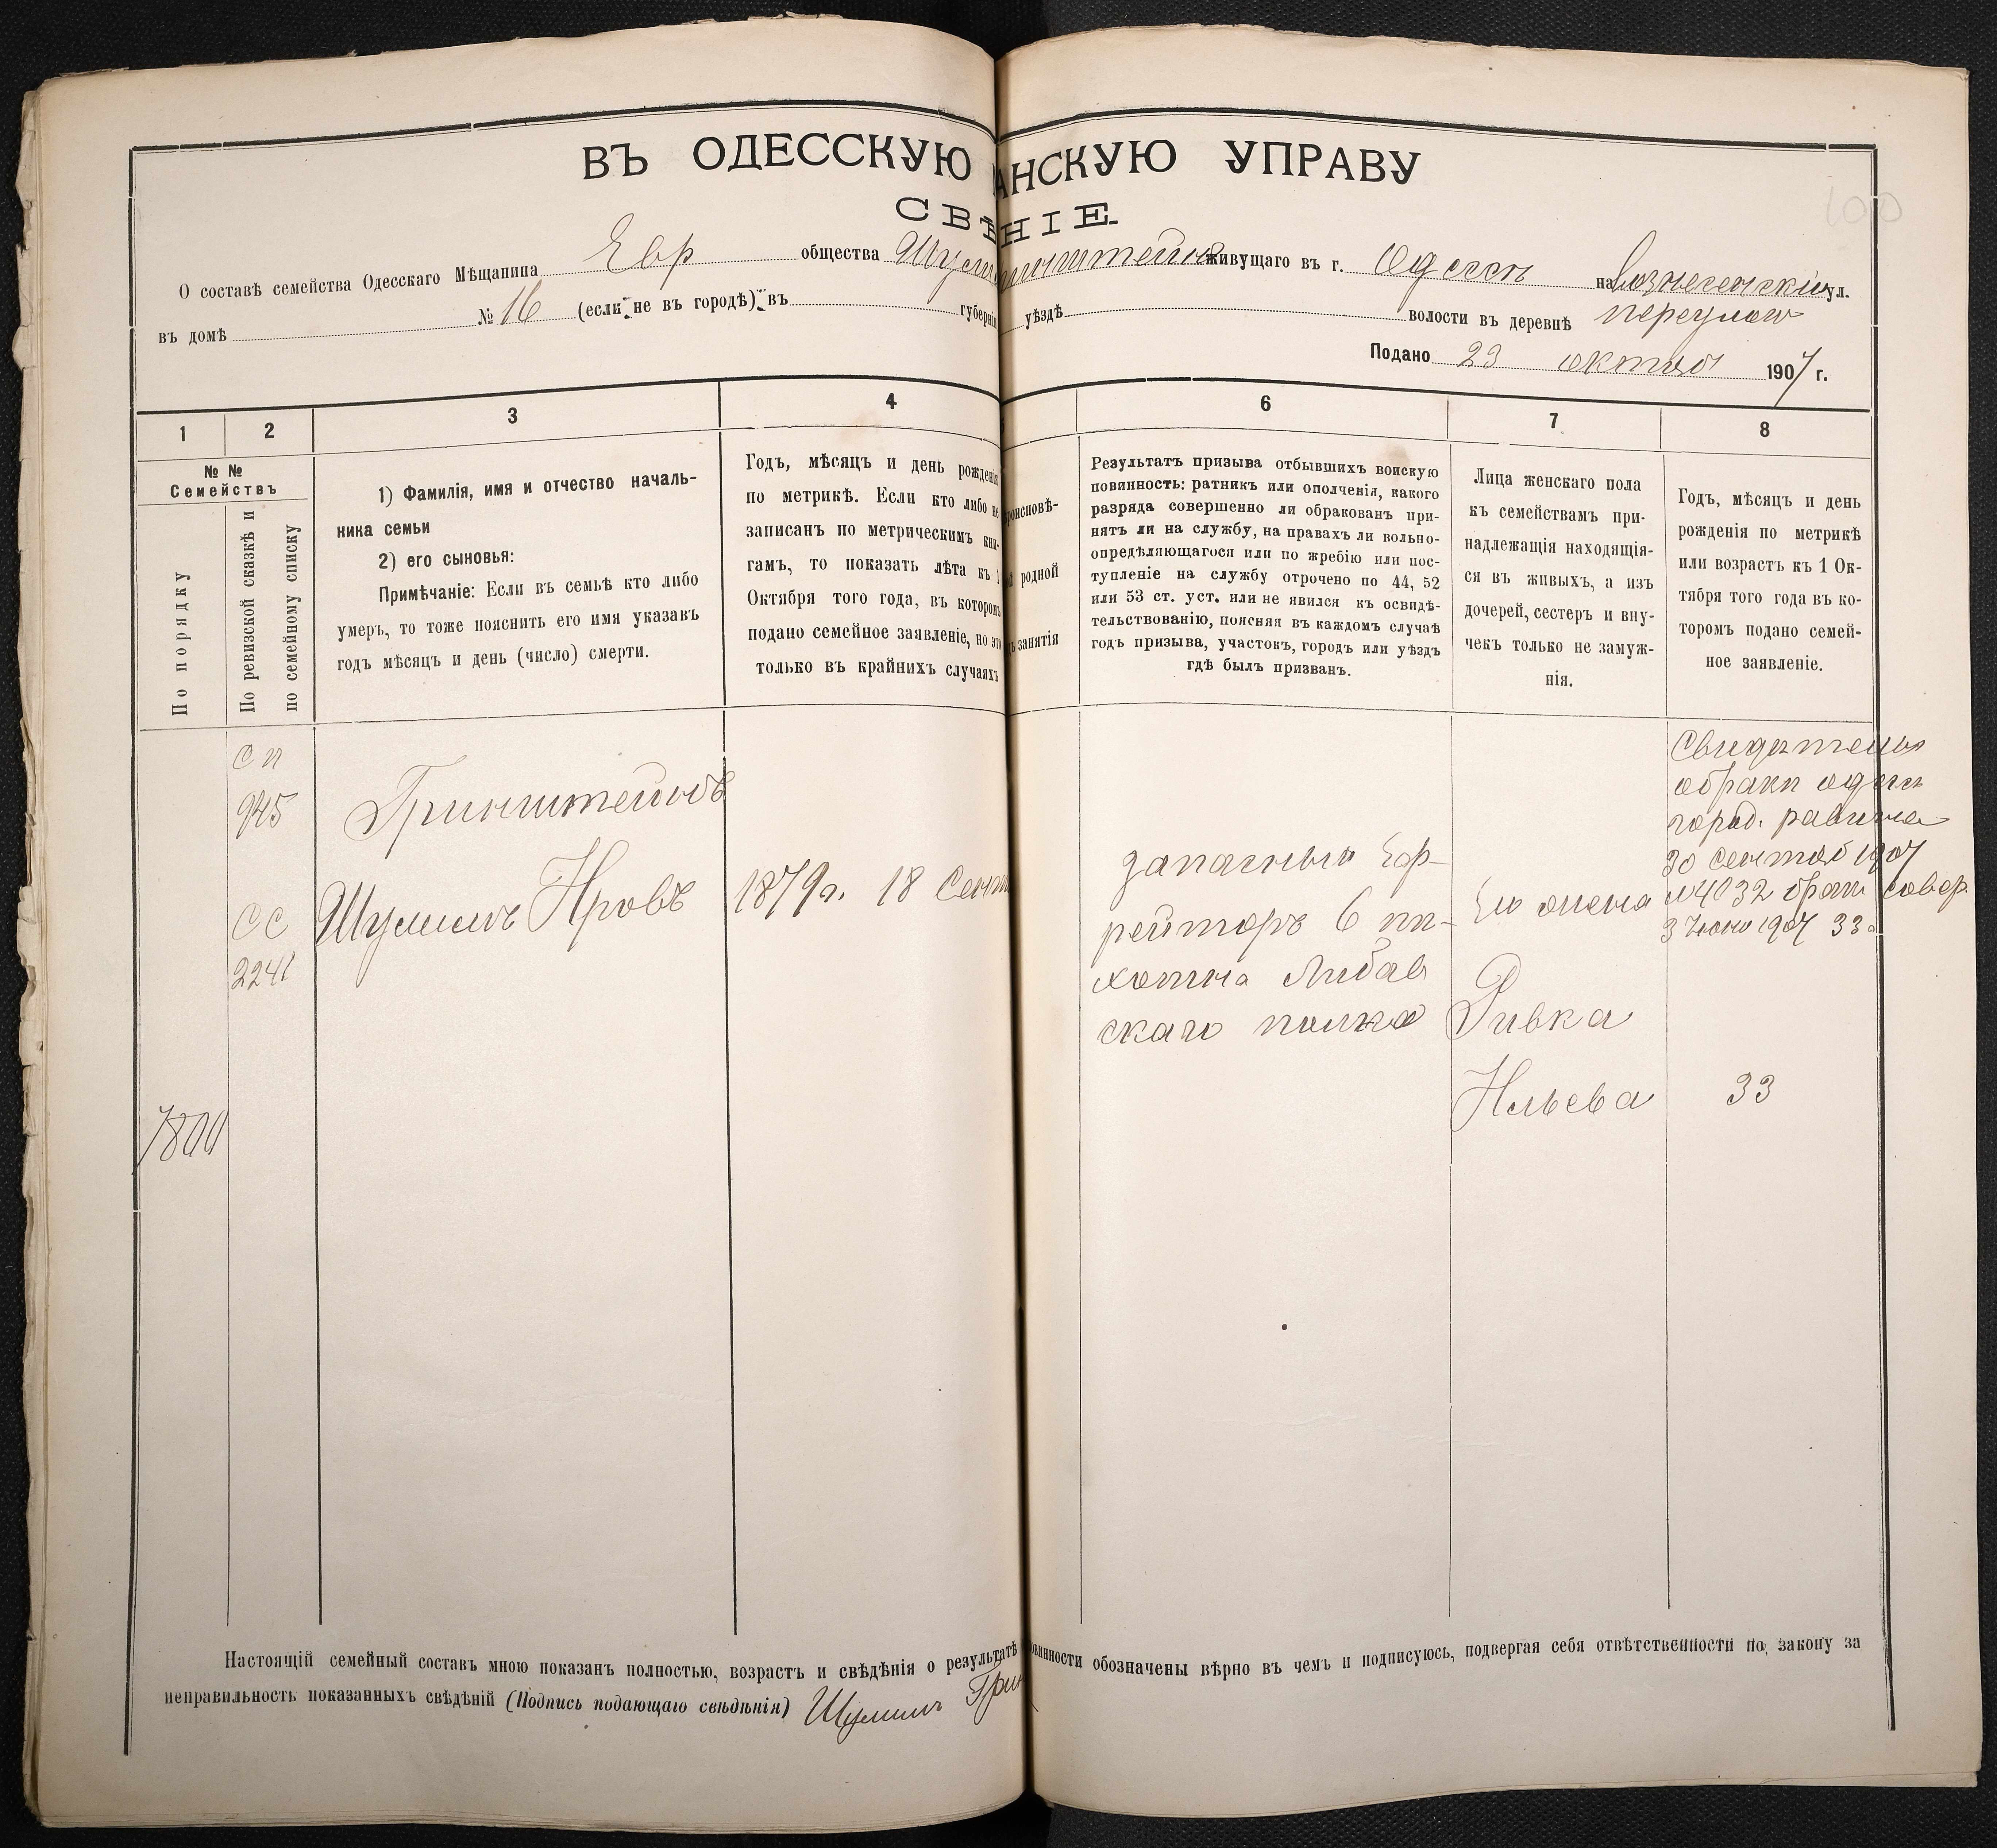 ВЪ ОДЕССКУЮ АНСКУЮ УПРАВУ
СВѢНІЕ.
О составѣ семейства Одесскаго Мѣщанина Евр общества живущаго въ г. Одессѣ на Вознесенскій ул.
въ домѣ № 16 (если не въ городѣ) въ губерніи уѣздѣ волости въ деревнѣ
Подано 23 октяб 1907 г.
100
1
2
3
4
6
7
8
№ №
Семействъ
По порядку
По ревизской сказкѣ и
по семейному списку
1) Фамилія, имя и отчество началь-
ника семьи
2) его сыновья:
Примѣчаніе: Если въ семьѣ кто либо
умеръ, то тоже пояснить его имя указавъ
годъ мѣсяцъ и день (число) смерти.
Годъ, мѣсяцъ и день рожденія
по метрикѣ. Если кто либо не
записанъ по метрическимъ кни-
гамъ, то показать лѣта къ 1
Октября того года, въ которомъ
подано семейное заявленіе, но это
только въ крайнихъ случаяхъ
роисповѣ-
родной
занятія
Результатъ призыва отбывшихъ воискую
повинность: ратникъ или ополченія, какого
разряда совершенно ли обракованъ при-
нятъ ли на службу, на правахъ ли вольно-
опредѣляющагося или по жребію или пос-
тупленіе на службу отрочено по 44, 52
или 53 ст. уст. или не явился къ освидѣ-
тельствованію, поясняя въ каждомъ случаѣ
годъ призыва, участокъ, городъ или уѣздъ
гдѣ былъ призванъ.
Лица женскаго пола
къ семействамъ при-
надлежащія находящія-
ся въ живыхъ, а изъ
дочерей, сестеръ и вну-
чекъ только не замуж-
нія.
Годъ, мѣсяцъ и день
рожденія по метрикѣ
или возрастъ къ 1 Ок-
тября того года въ ко-
торомъ подано семей-
ное заявленіе.
СП
945
Гринштейнъ
СС
2241
Шулимъ
1879г. 18 Сент
запасный Еф-
рейторъ 6 пѣ-
хотна Либав
скаго полка
Его жена
Ривка
Ильева
33
город. равина
30 Сентяб 1907
№4032 брак совер.
3 Июн 1907 33
Настоящій семейный составъ мною показанъ полностью, возрастъ и свѣдѣнія о результатѣ овинности обозначены вѣрно въ чемъ и подписуюсь, подвергая себя отвѣтственности по, закону за
неправильность показанныхъ свѣдѣній (Подпись подающаго свѣдѣнія) Шулимъ Грин